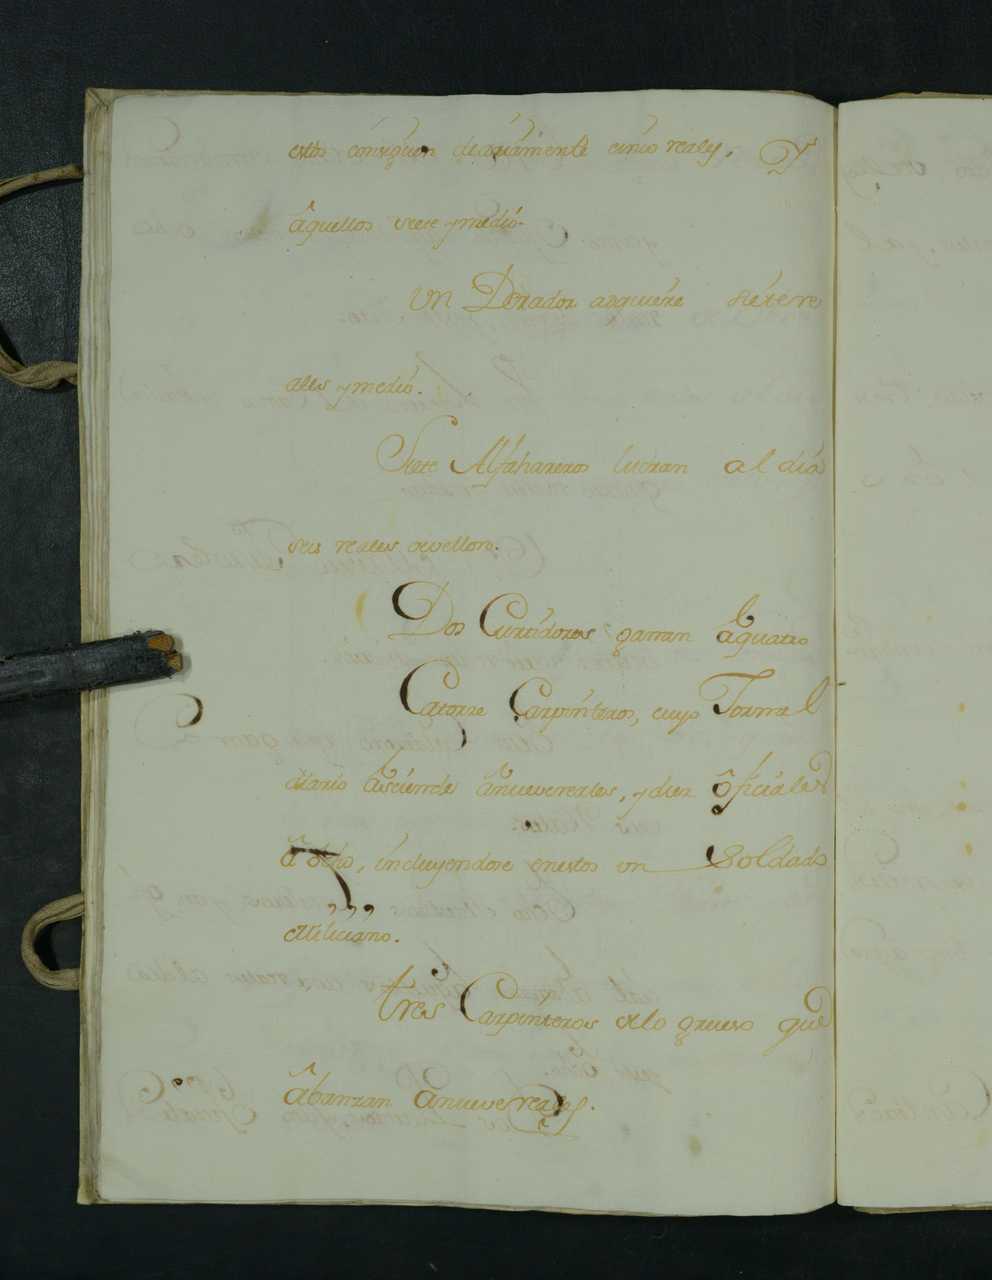 estos consiguen diariamente cinco reales, Y
âquellos siete y medio.
Un Dorador adquiere siete re
ales y medio.
Siete Alfahareros lucran al dia
seis reales de vellon.
Dos Curtidores ganan â quatro
Catorze Carpinteros, cuyo Jornal
diario asciende â nueve reales, y diez ôficiales
â ôcho, incluyendose en estos un Soldado
Miliciano.
tres Carpinteros de lo grueso que
âbanzan a nueve reales.